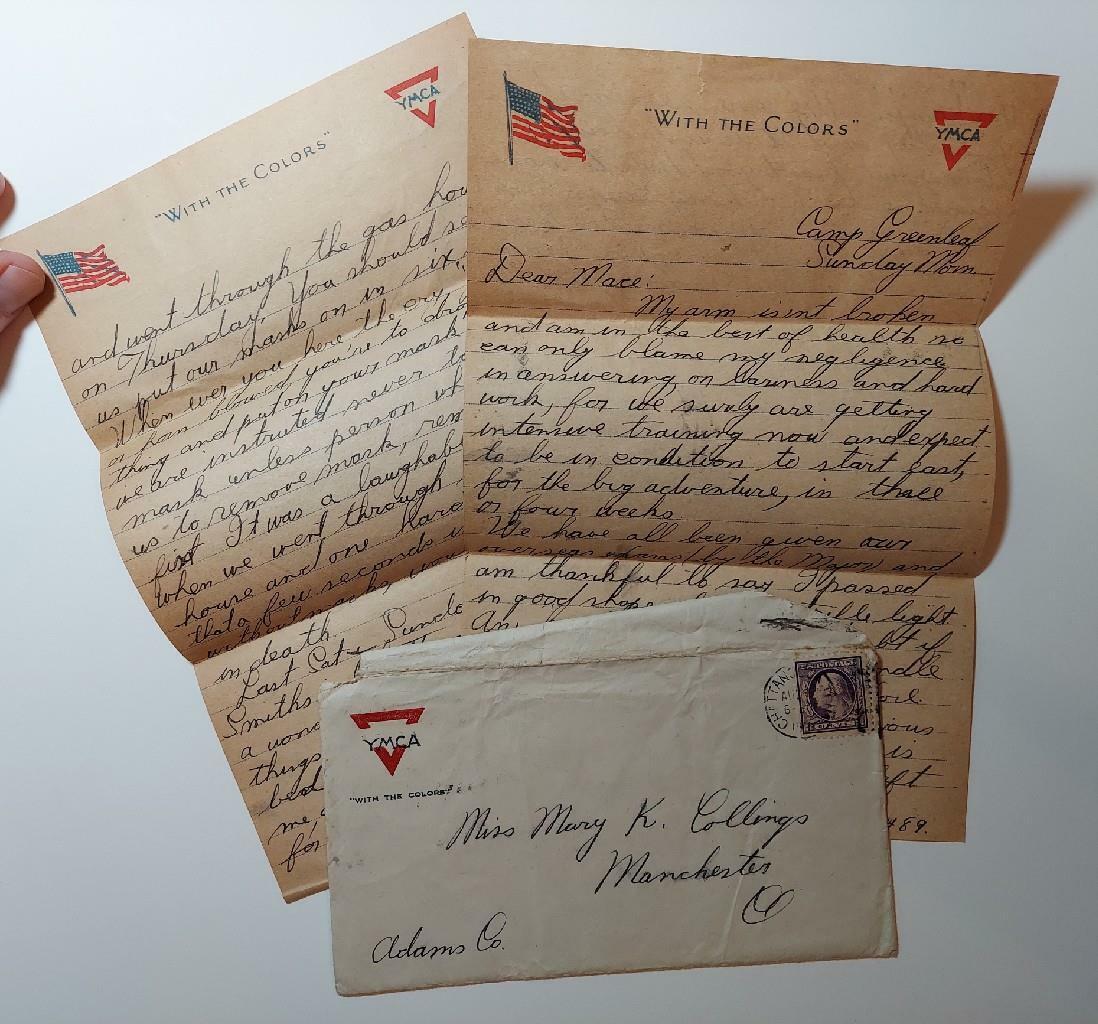 "WITH THE COLORS"
YMCA
and went through the gas hou
on Thursday. You should se
us put our masks on in six.
When ever you here the cry
or horn blowed, you're to dro
thing and put on your mask
we are instruted never to
mask unless person wh
us to remove mask, rem
first It was a laughab
when we went through
house and one
that a few seconds
without masks wou
in death.
Last Sat
Smiths
a won
things
me
for
"WITH THE COLORS"
YMCA
Camp Greenleaf
Sunday Morn
Dear Mace:
My arm isint broken
and am in the best of health no
can only blame my negligence
in answering on laziness and hard
work, for we surly are getting
intensive training now and expect
to be in condition to start east,
for the big adventure, in three
or four weeks
We have all been given our
overseas by the Major and
am thankful to say I passed
in good shap light
An bt if
ious
is
ft
489.
YMCA
"WITH THE COLORS"
CHATTAN
Miss Mary K. Collings
Manchester
O
Adams Co.